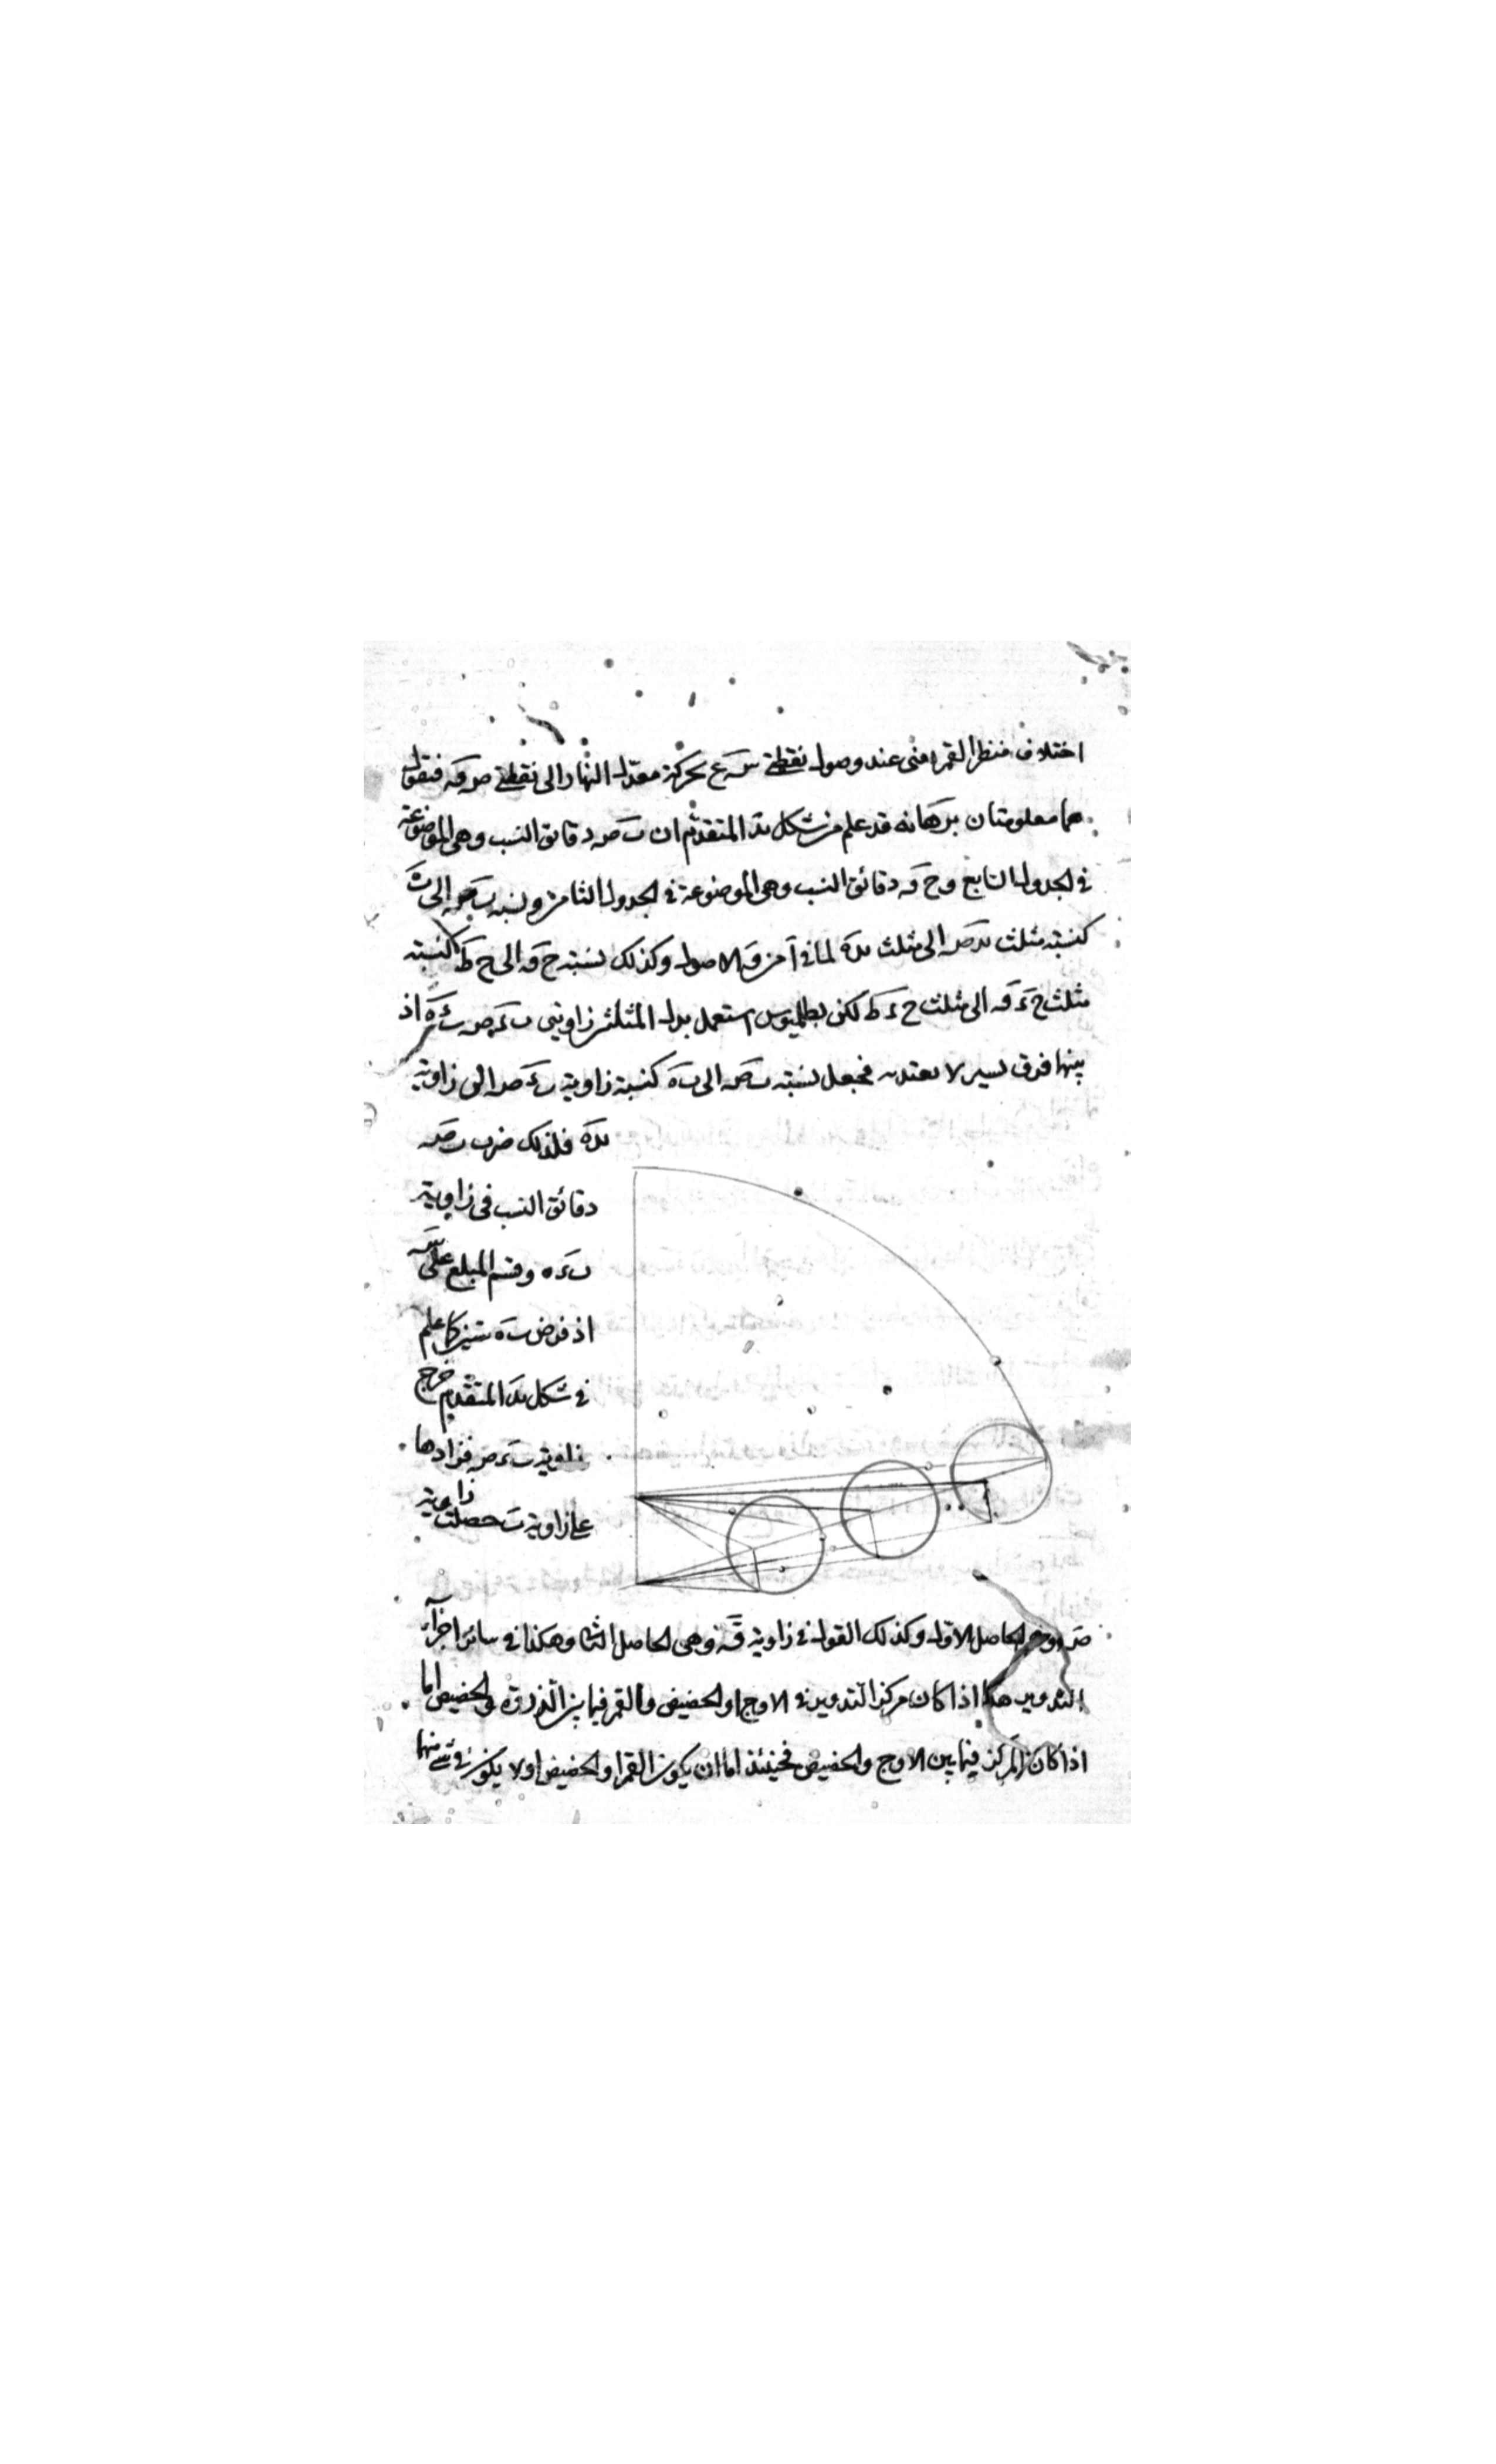 اختلاف منظر القمر اعنى عند وصول نقطتى س ع بحركة معدل النهار الى نقطتى ص ق فنقول
هما معلومتان برهانه قد علم من شكل يد المتقدم ان ب ص دقائق النسب وهى الموضوعة
فى الجدول التابع و ح ق دقائق النسب وهى الموضوعة فى الجدول الثامن ونسبة ب ص الى ب ه
كنسبة مثلث ب د ص الى مثلث ب د ه لما فى ا من و الاصول وكذلك نسبة ح ق الى ح ط كنسبة
مثلث ح ء ق الى مثلث ح ء ط لكن بطلميوس استعمل بدل المثلثين زاويتى ب ء ص ب ء ه اذ
بينهما فرق يسير لا يعتد به فجعل نسبة ب ص الى ب ه كنسبة زاوية ب ء ص الى زاوية
ب د ه فلذلك ضرب ب ص
دقائق النسب فى زاوية
ب ء ه وقسم المبلغ على س
اذ فرض ب ه ستين كما علم
فى شكل يد المتقدم خرج
زاوية ب ء ص فزادها
على زاوية ب حصلت زاوية
ص وهى الحاصل الاول وكذلك القول فى زاوية ق وهى الحاصل الثانى وهكذا فى سائر اجزاء
التدوير هذا اذا كان مركز التدوير فى الاوج او الحضيض والقمر فيما بين الذروة والحضيض اما
اذا كان المركز فيما بين الاوج والحضيض فحينئذ اما ان يكون القمر او الحضيض او لا يكون فى شئ منهما